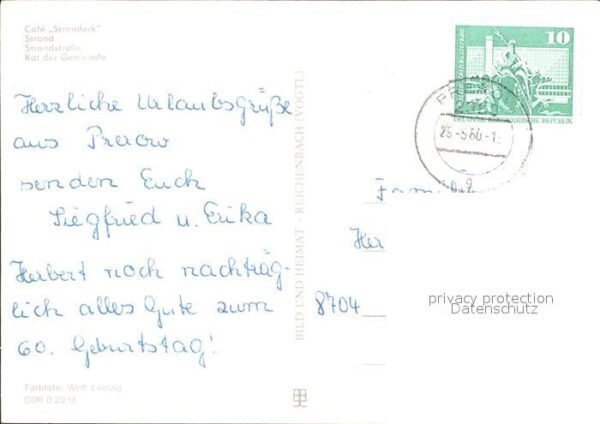 Café „Strandeck"
Strand
Strandstraße
Rat der Gemeinde
Herzliche Urlaubsgrüße
aus Prerow
senden Euch
Siegfried u. Erika
Herbert noch nachträg-
lich alles Gute zum
60. Geburtstag!
Farbfoto: Weff Leipzig
DDR 0,20 M
BILD UND HEIMAT · REICHENBACH (VOGTL)
10
DEUTSCHE DEMOKRATISCHE REPUBLIK
Famili
Her
8704
privacy protection
Datenschutz